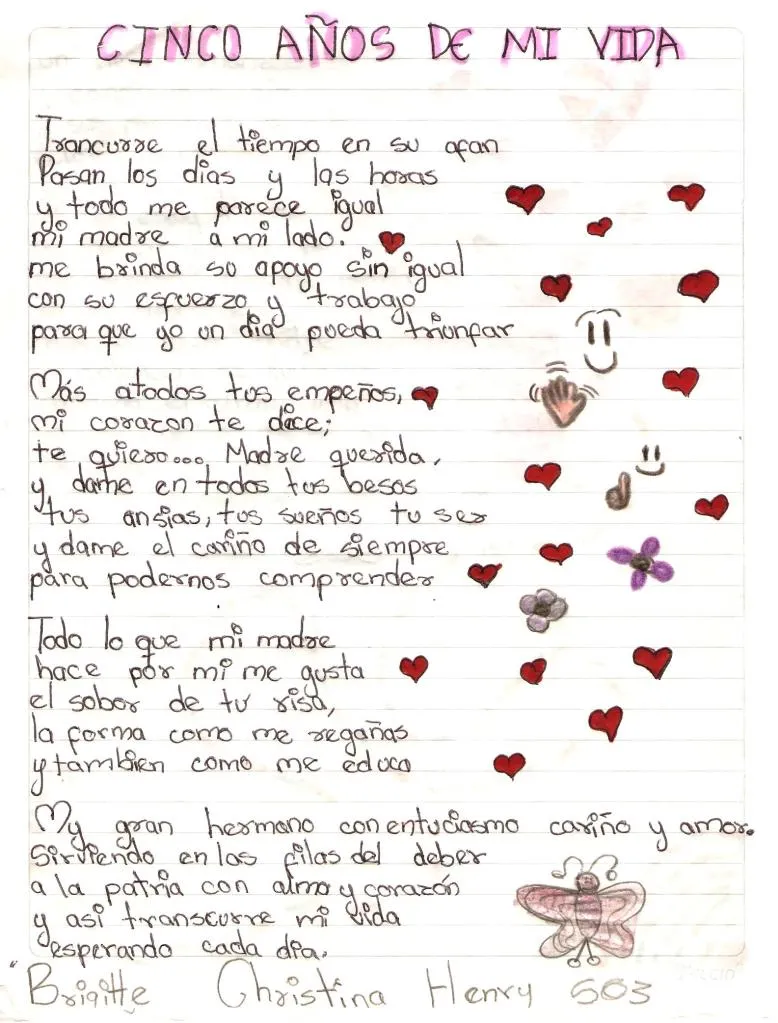 CINCO AÑOS DE MI VIDA
Trancurre el tiempo en su afan
Pasan los dias y las horas
y todo me parece igual
mi madre a mi lado.
me brinda su apoyo sin igual
con su esfuerzo y trabajo
para que yo un dia pueda triunfar
Más atodos tus empeños,
mi corazon te dice;
te quiero... Madre querida,
y dame en todos tus besos
tus ansias, tus sueños tu ser
y dame el cariño de siempre
para podernos comprender
Todo lo que mi madre
hace por mi me gusta
el sobor de tu risa,
la forma como me regañas
y tambien como me educa
My gran hermano con entuciasmo cariño y amor.
Sirviendo en las filas del deber
a la patria con alma y corazón
y asi transcurre mi vida
esperando cada dia.
"Brigitte Christina Henry 503